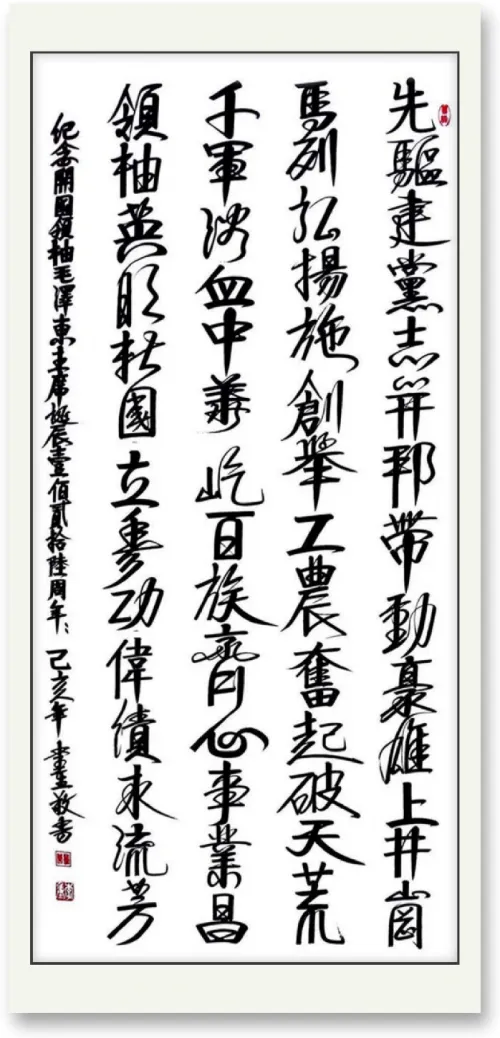 先驅建黨志邦帶動豪雄上井崗
馬列弘揚施創舉工農奮起破天荒
千軍浴血中華屹百族齊心事業昌
領袖英明國立豐功偉績永流芳
紀念開國領袖毛澤東主席誕辰壹佰貳拾陸周年；己亥年敬書